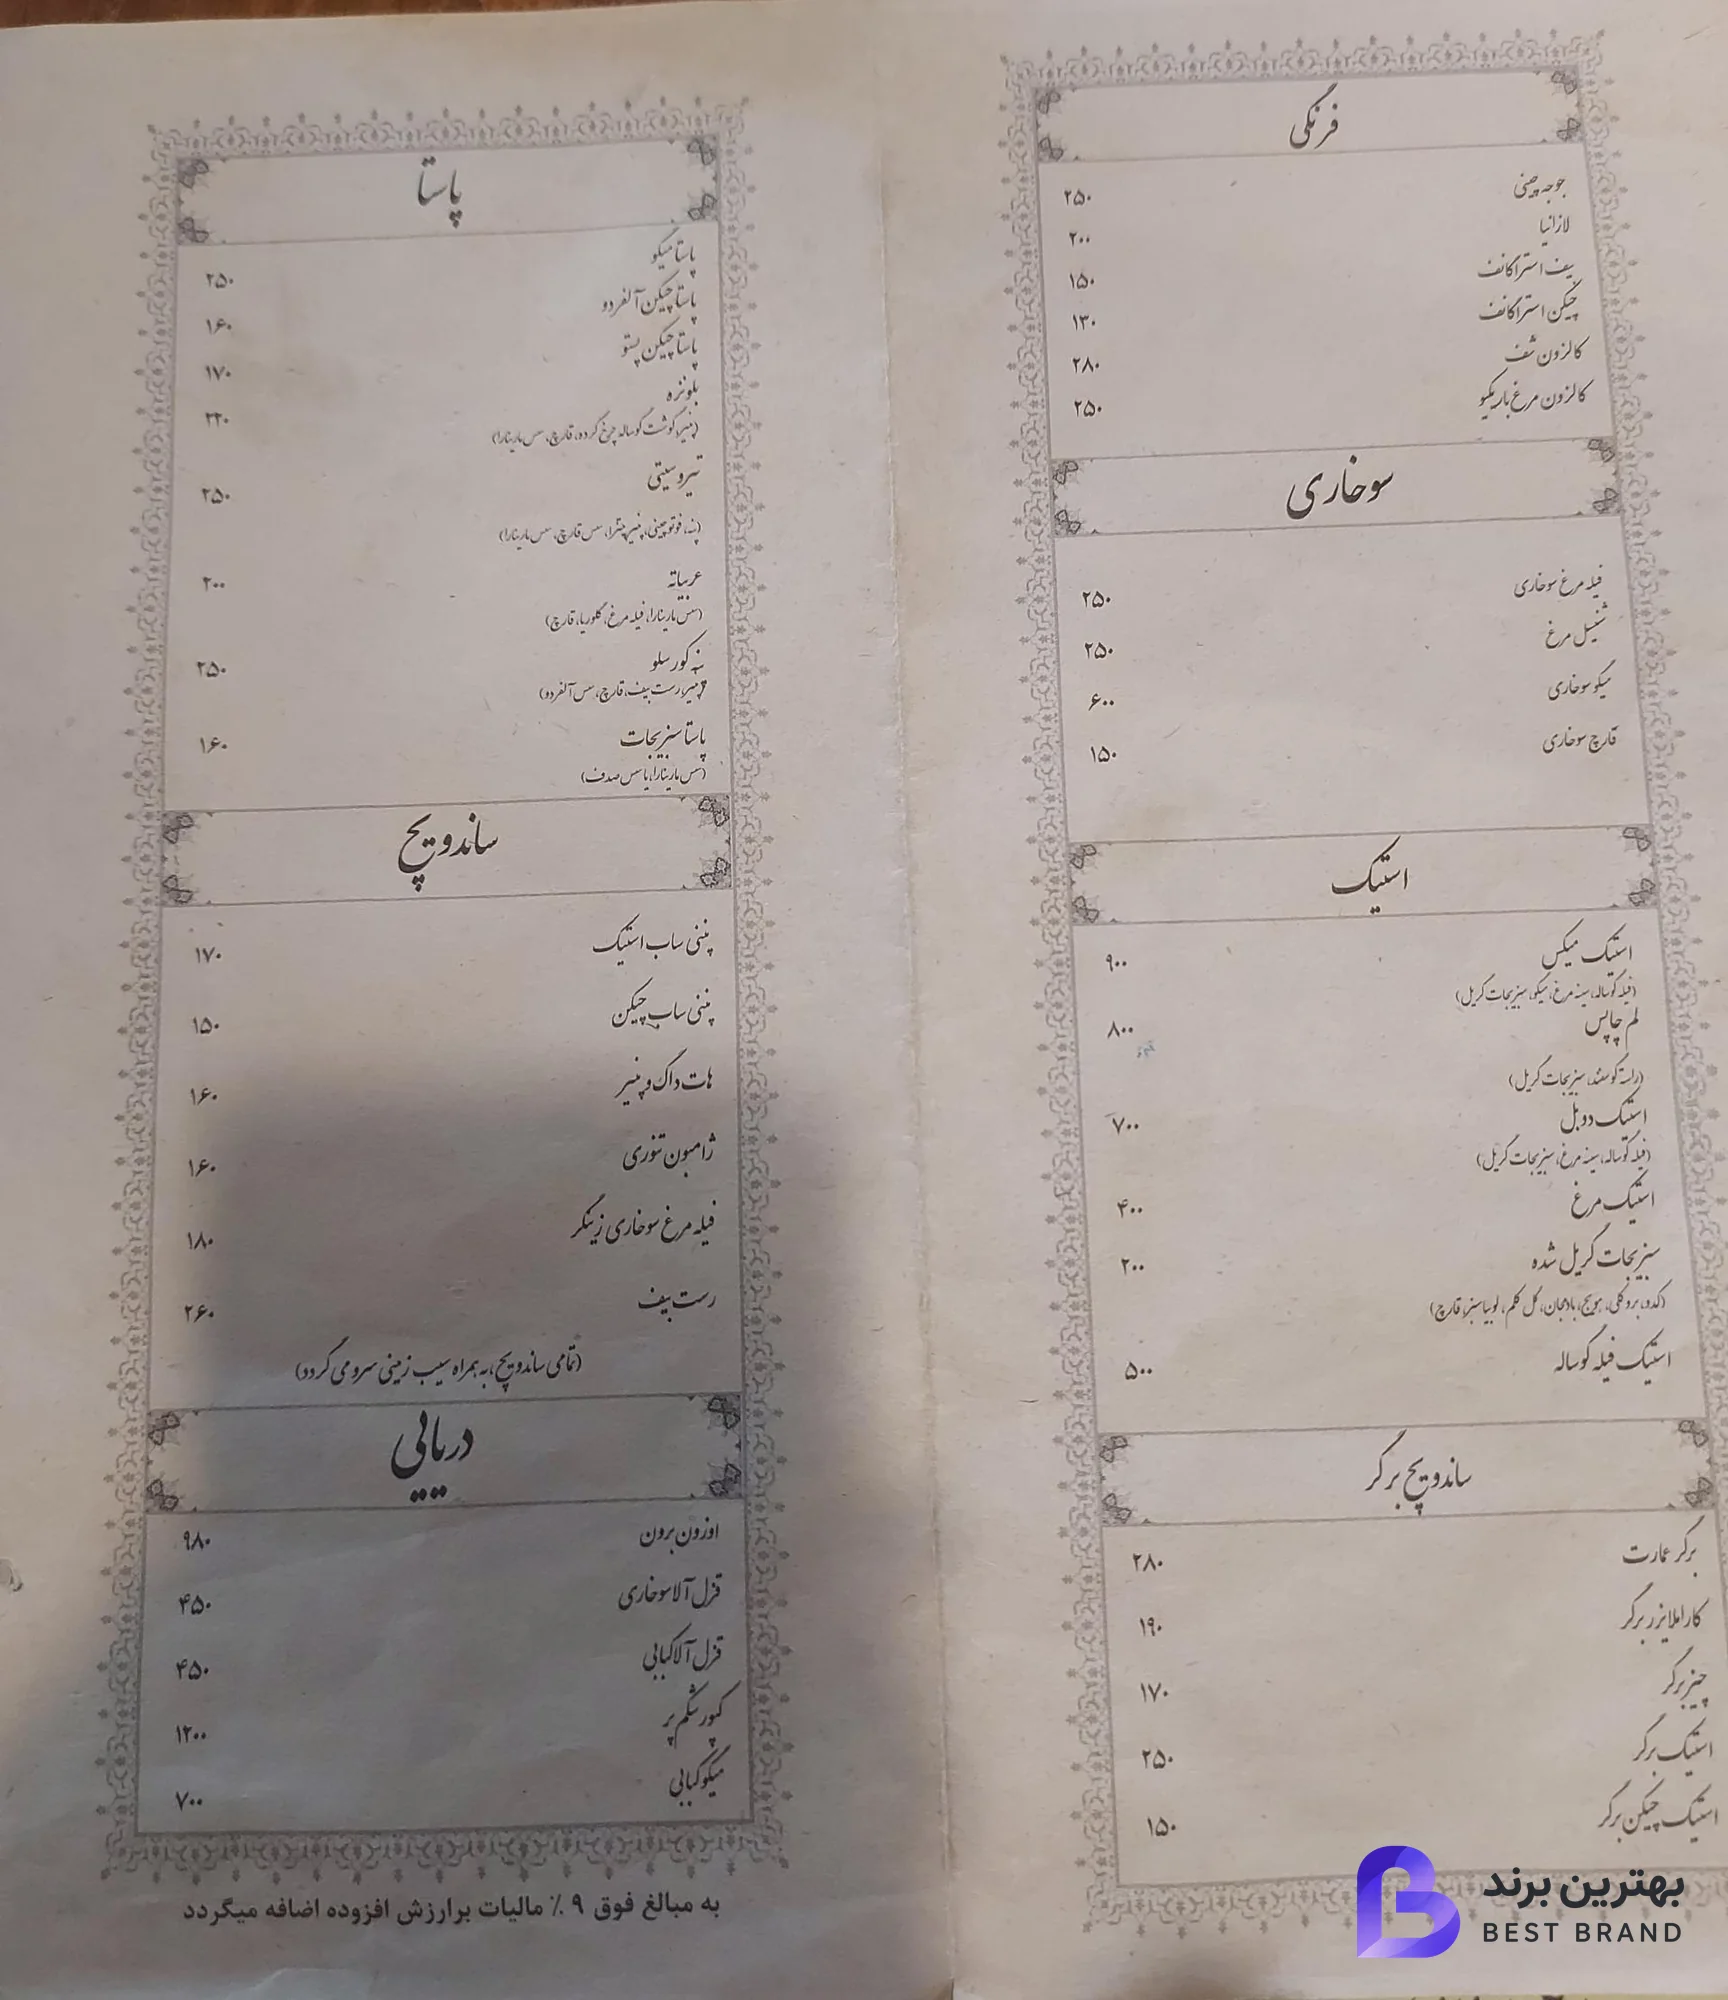 فرنگی
جوجه چینی ۲۵۰
لازانیا ۲۰۰
بیف استراگانف ۱۵۰
چیکن استراگانف ۱۳۰
کالزون شف ۲۸۰
کالزون مرغ باربیکیو ۲۵۰
سوخاری
فیله مرغ سوخاری ۲۵۰
شنیسل مرغ ۲۵۰
میگو سوخاری ۶۰۰
قارچ سوخاری ۱۵۰
استیک
استیک میکس ۹۰۰
(فیله گوساله، سینه مرغ، میگو، سبزیجات گریل)
لم چاپس ۸۰۰
(راسته گوسفند، سبزیجات گریل)
استیک دوبل ۷۰۰
(فیله گوساله، سینه مرغ، سبزیجات گریل)
استیک مرغ ۴۰۰
سبزیجات گریل شده ۲۰۰
(کدو، بروکلی، هویج، بادمجان، گل کلم، لوبیا سبز، قارچ)
استیک فیله گوساله ۵۰۰
ساندویچ برگر
برگر عمارت ۲۸۰
کاراملایزر برگر ۱۹۰
چیزبرگر ۱۷۰
استیک برگر ۲۵۰
استیک چیکن برگر ۱۵۰
پاستا
پاستا میگو ۲۵۰
پاستا چیکن آلفردو ۱۶۰
پاستا چیکن پستو ۱۷۰
بلونزه ۲۲۰
(پنیر، گوشت گوساله چرخ کرده، قارچ، سس مارینارا)
تیروسیتی ۲۵۰
(پنه، فوتوچینی، پنیر چتر، سس قارچ، سس مارینارا)
عربیاته ۲۰۰
(سس مارینارا، فیله مرغ، گلوریا، قارچ)
پنه کورسلو ۲۵۰
(پنیر، رست بیف، قارچ، سس آلفردو)
پاستا سبزیجات ۱۶۰
(سس مارینارا، یا سس صدف)
ساندویچ
پنینی ساب استیک ۱۷۰
پنینی ساب چیکن ۱۵۰
هات داگ و پنیر ۱۶۰
ژامبون تنوری ۱۶۰
فیله مرغ سوخاری زینگر ۱۸۰
رست بیف ۲۶۰
(تمامی ساندویچ، به همراه سیب زمینی سرو می گردد)
دریایی
اوزون برون ۹۸۰
قزل آلا سوخاری ۴۵۰
قزل آلا کبابی ۴۵۰
کپور شکم پر ۱۲۰۰
میگو کبابی ۷۰۰
به مبالغ فوق ۹ ٪ مالیات برارزش افزوده اضافه میگردد
بهترین برند
BEST BRAND